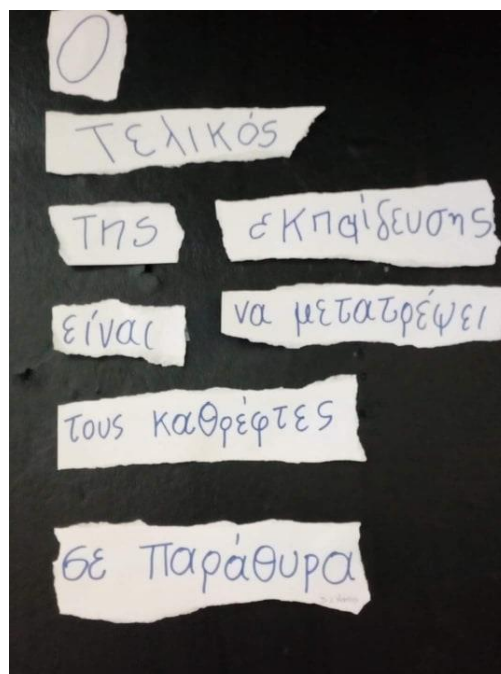 Ο
Τελικός
της εκπαίδευσης
είναι να μετατρέψει
τους καθρέφτες
σε παράθυρα